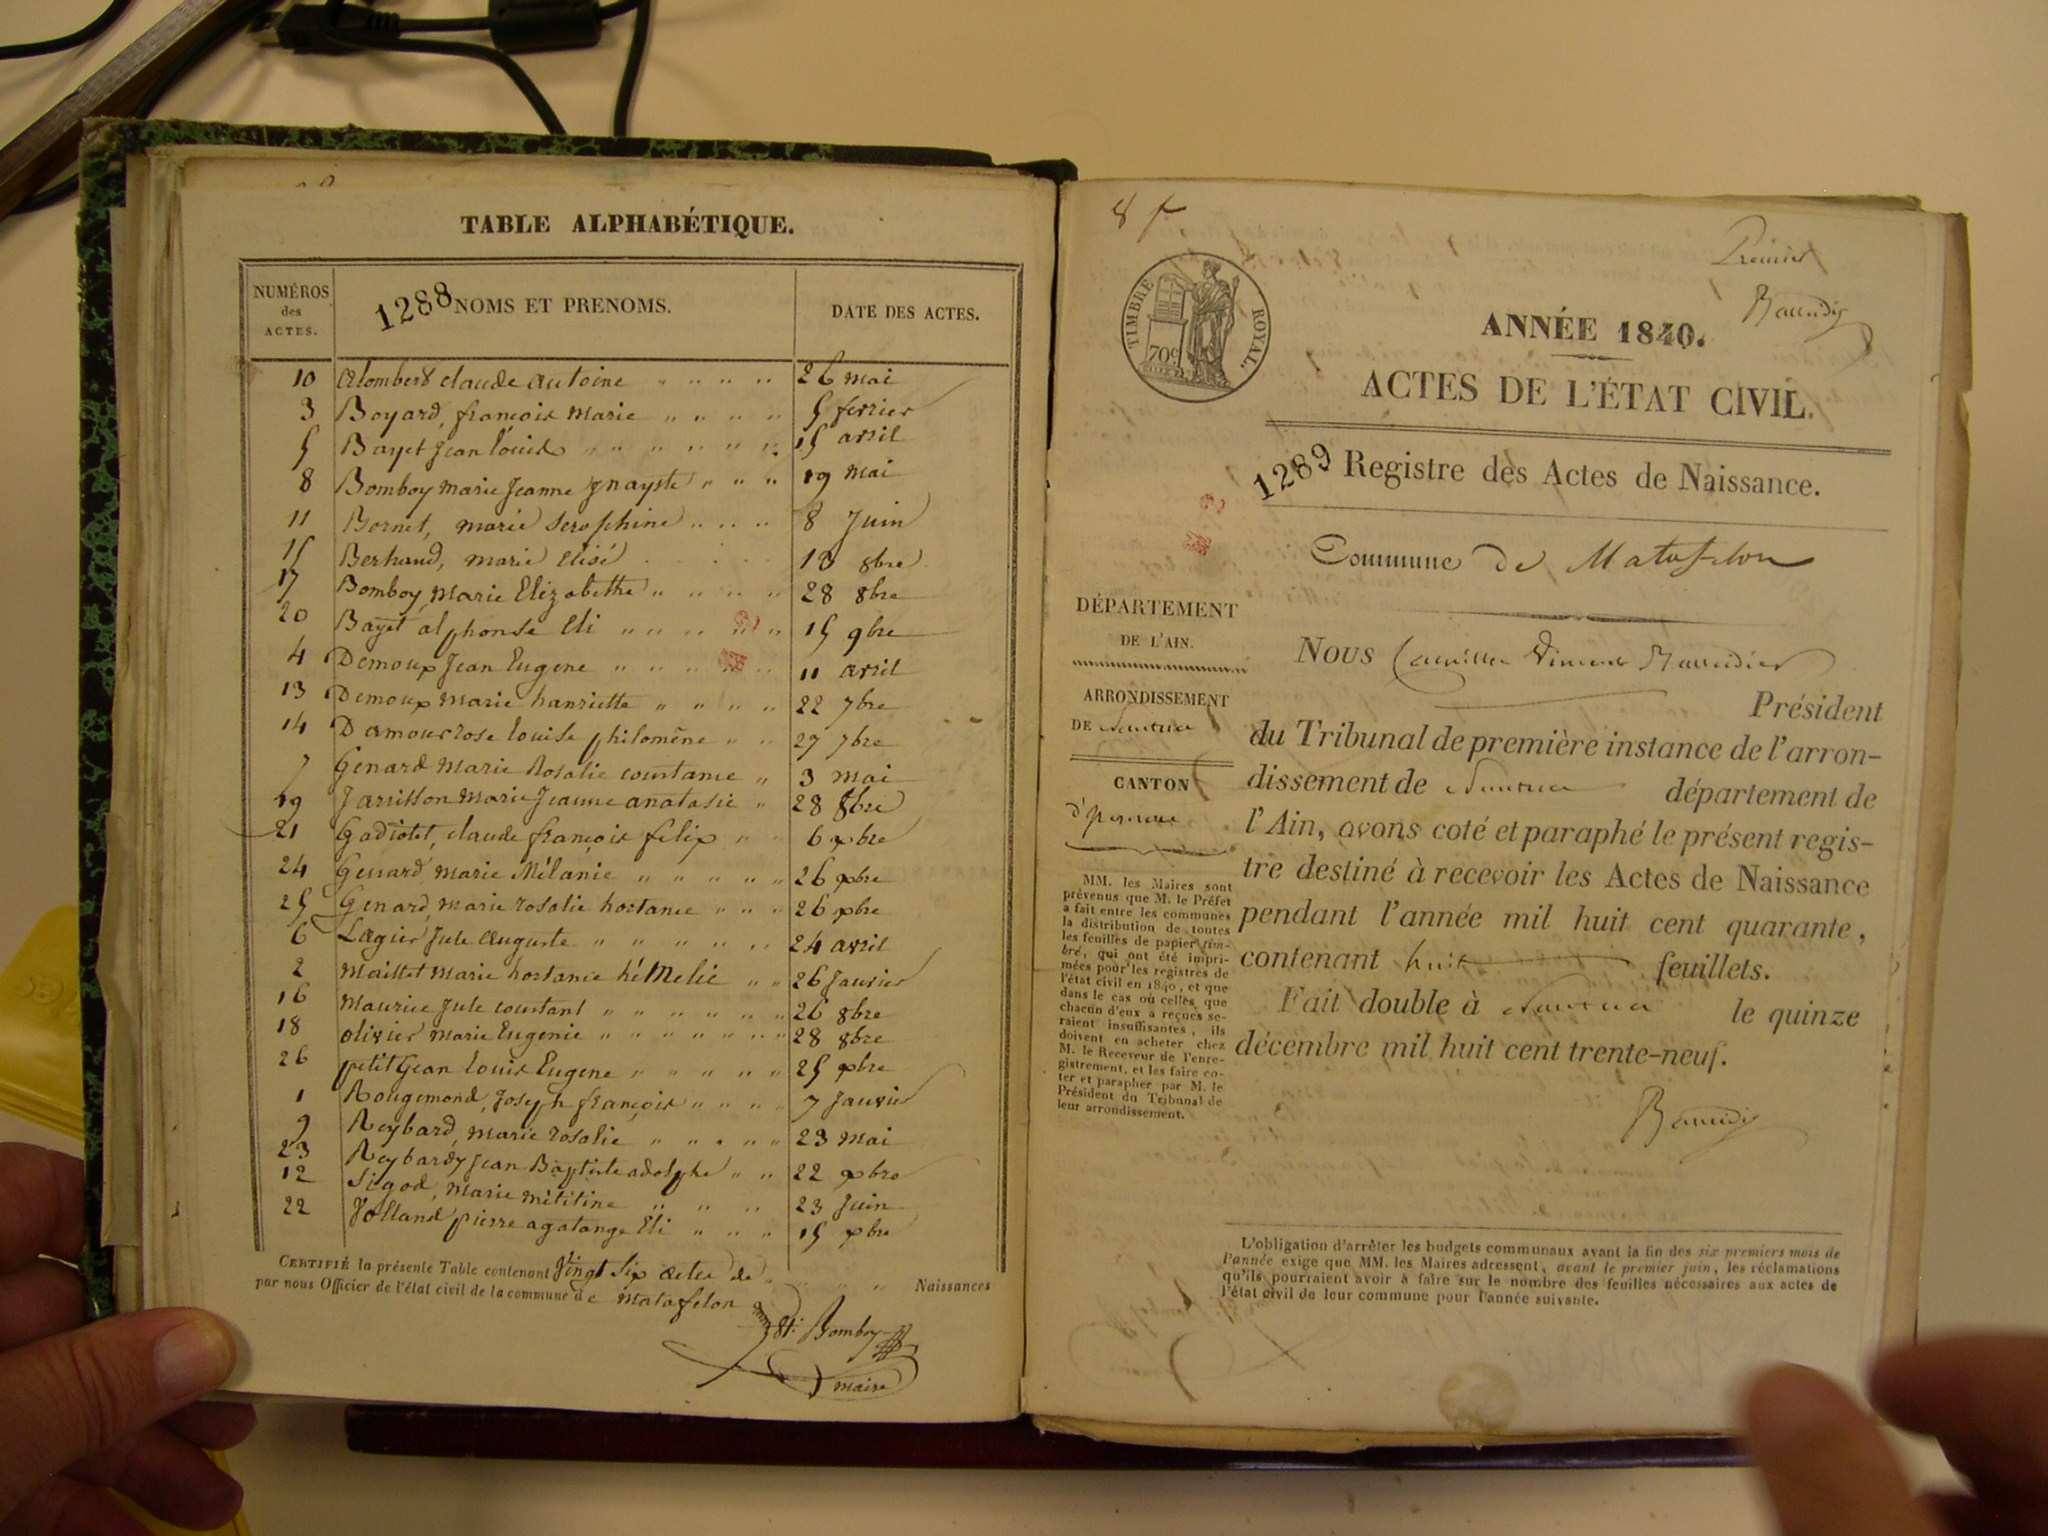 TABLE ALPHABÉTIQUE.
NUMÉROS des ACTES.
1288
NOMS ET PRENOMS.
DATE DES ACTES.
10 Alombert claude antoine " " " " 26 mai
3 Boyard, françois Marie " " " " 5 fevrier
5 Bayet Jean louis " " " " " " 15 avril
8 Bomboy marie Jeanne " " " 19 mai
11 Bornet, marie seraphine " " " 8 Juin
15 Berthaud, marie elisé 13 8bre
17 Bomboy, Marie Elizabethe " " " " 28 8bre
20 Bayet alphonse Eli " " " " " 15 9bre
4 Demoux Jean Eugene " " " " " 11 avril
13 Demoux marie hanriette " " " " 22 7bre
14 Damour rose louise philomène " " 27 7bre
7 Genard Marie Rosalie constance " 3 mai
19 Marie Jeanne anatasie " 28 8bre
21 Gadiolet, claude françois felix " " 6 xbre
24 Genard marie Mélanie " " " " " 26 xbre
25 Genard, marie rosalie hortance " " " 26 xbre
6 Lagier Jule auguste " " " " " 24 avril
2 Maillet Marie hortance " " 26 Janvier
16 Maurice Jule constant " " " " " " 26 8bre
18 olivier marie Eugenie " " " " " " " 28 8bre
26 petit Gean louis Eugene " " " " " 25 xbre
1 Rougemond, Joseph françois " " " " 7 Janvier
9 Reybard, marie rosalie " " " " " 23 mai
23 Reybard Jean Baptiste adolphe " " 22 xbre
12 Sigod, marie métitine " " " 23 Juin
22 Volland pierre agatange Eli " " " 15 xbre
CERTIFIÉ la présente Table contenant Vingt Six actes de " " " Naissances
par nous Officier de l'état civil de la commune de Matafelon
Bomboy
maire
8 f
Premier
Baudier
TIMBRE ROYAL.
70c
ANNÉE 1840.
ACTES DE L'ÉTAT CIVIL.
1289
Registre des Actes de Naissance.
Commune de Matafelon
DÉPARTEMENT
DE L'AIN.
ARRONDISSEMENT
DE Nantua
CANTON
MM. les Maires sont
prévenus que M. le Préfet
a fait entre les communes
la distribution de toutes
les feuilles de papier tim-
bré, qui ont été impri-
mées pour les registres de
l'état civil en 1840, et que
dans le cas où celles que
chacun d'eux a reçues se-
raient insuffisantes, ils
doivent en acheter chez
M. le Receveur de l'enre-
gistrement, et les faire co-
ter et parapher par M. le
Président du Tribunal de
leur arrondissement.
Nous
Président
du Tribunal de première instance de l'arron-
dissement de Nantua département de
l'Ain, avons coté et paraphé le présent regis-
tre destiné à recevoir les Actes de Naissance
pendant l'année mil huit cent quarante,
contenant huit feuillets.
Fait double à Nantua le quinze
décembre mil huit cent trente-neuf.
L'obligation d'arrêter les budgets communaux avant la fin des six premiers mois de
l'année exige que MM. les Maires adressent, avant le premier juin, les réclamations
qu'ils pourraient avoir à faire sur le nombre des feuilles nécessaires aux actes de
l'état civil de leur commune pour l'année suivante.